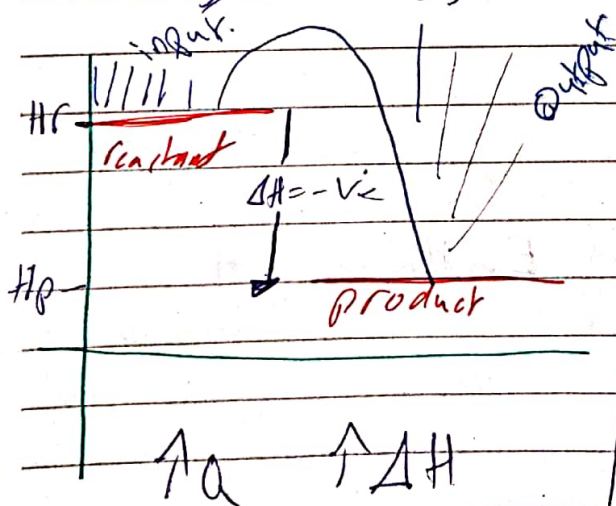 input.
Output
Hr
reactant
ΔH = -Ve
Hp
product
↑Q ↑ΔH